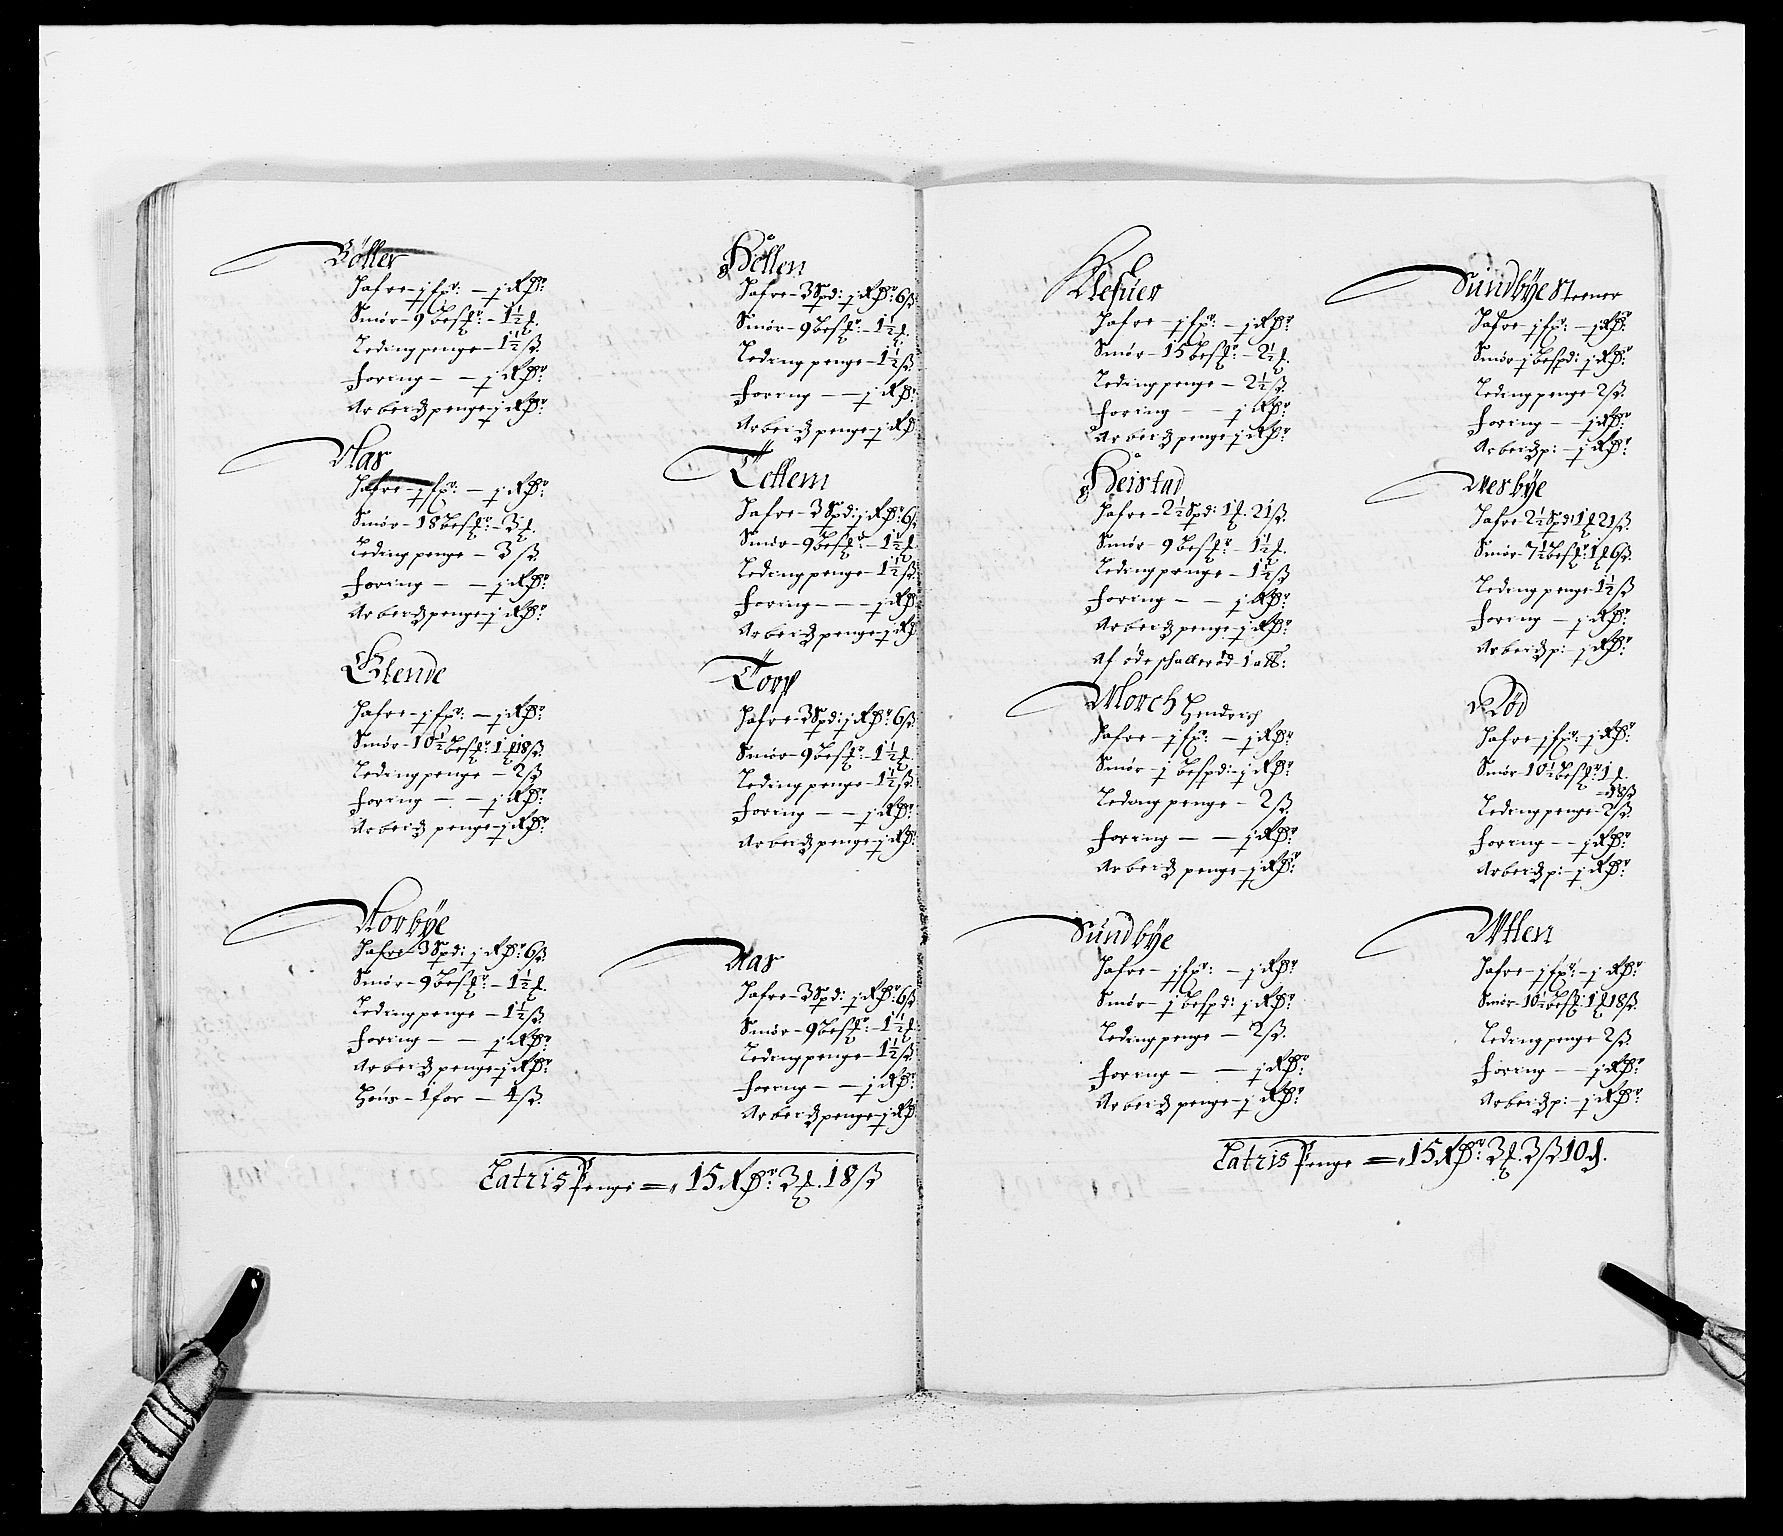 Böller
Hafre - j fxr: - j Rdr:
Smör - 9 Besḿr: - 1½ ℥.
Ledingpenge - 1½ ß.
Foring - - j Rdr:
Arbeidzpenge - j Rdr:
Aas
Hafre - j fxr: - j Rdr:
Smör - 18 Besḿr: - 3 ℥.
Ledingpenge - 3 ß.
Foring - - j Rdr:
Arbeidzpenge - j Rdr:
Glende
Hafre - j fxr: - j Rdr:
Smör - 10½ Besḿr: 1 ℥ 18 ß.
Ledingpenge - 2 ß
Foring - - j Rdr:
Arbeidz penge - j Rdr:
Norbÿe
Hafre - 3 Spd: j Rdr: 6 ß
Smör - 9 Besḿr: - 1½ ℥.
Ledingpenge - 1½ ß.
Foring - - j Rdr:
Arbeidzpenge - j Rdr:
Höns - 1 for - 4 ß.
Höllen
Hafre - 3 Spd: j Rdr: 6 ß:
Smör - 9 Besḿr: - 1½ ℥.
Ledingpenge - 1½ ß
Foring - - j Rdr:
Arbeidzpenge - j Rdr
Hafre - 3 Spd: j Rdr: 6
Smör - 9 Besḿr: - 1½ ℥.
Ledingpenge - 1½ ß.
Foring - - - j Rdr
Arbeidzpenge - j Rd
Torp
Hafre - 3 Spd: j Rdr: 6 ß
Smör - 9 Besḿr: - 1½ ℥.
Ledingpenge - 1½ ß.
Foring - - j Rdr:
Arbeidzpenge - j Rdr:
Aas
Hafre - 3 Spd: j Rdr: 6 ß
Smör - 9 Besḿr: - 1½ ℥
Ledingpenge - 1½ ß
Foring - - j Rdr:
Arbeidzpenge - j Rd
Latris Penge = 15 Rdr: 3 ℥. 18 ß
Hafre - j fxr: - j Rdr:
Smör - 15 Besḿr: - 2½ ℥.
Ledingpenge - 2½ ß.
Foring - - j Rdr:
Arbeidzpenge - j Rdr:
Heistad
Hafre - 2½ Spd: 1 ℥. 21 ß.
Smör - 9 Besḿr: - 1½ ℥.
Ledingpenge - 1½ ß
Foring - - j Rdr:
Arbeidzpenge - j Rdr:
Af öde schalleröd - 1
Morch Hendrich
Hafre - j fxr: - j Rdr:
Smör - j Bespd: - j Rdr:
Leding penge - 2 ß.
Foring - - j Rdr:
Arbeidz penge - j Rdr:
Sundbÿe
Hafre - j fxr: - j Rdr:
Smör - j Bespd: j Rdr:
Ledingpenge - 2 ß.
Foring - - j Rdr:
Arbeidz penge - j Rdr:
Sundbÿe Steener
Hafre - j fxr: - j Rdr:
Smör j Bespd: j Rdr:
Ledingpenge 2 ß.
Foring - - j Rdr:
Arbeidzp: - j Rdr:
Nesbÿe
Hafre 2½ Spd: 1 ℥ 21 ß.
Smör 7½ Besḿr: 1 ℥ 6 ß.
Ledingpenge 1½ ß
Foring - j Rdr:
Arbeidzp: - j Rdr:
Röd
Hafre j fxr: - j Rdr:
Smör 10½ Besḿr: 1 ℥.
= 18 ß
Ledingpenge - 2 ß.
Foring - - j Rdr:
Arbeidzp: - j Rdr:
Hafre - j fxr: - j Rdr:
Smör - 10½ Besḿ: 1 ℥ 18 ß.
Ledingpenge 2 ß.
Foring - - j Rdr:
Arbeidzp: - j Rdr:
Latris Penge = 15 Rdr: 3 ℥. 3 ß 10 ₰.